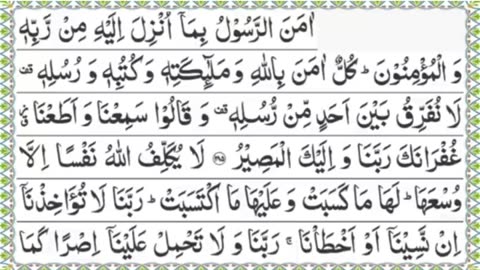 اٰمَنَ الرَّسُوْلُ بِمَاۤ اُنْزِلَ اِلَيْهِ مِنْ رَّبِّهٖ
وَ الْمُؤْمِنُوْنَ ؕ كُلٌّ اٰمَنَ بِاللّٰهِ وَ مَلٰٓئِكَتِهٖ وَ كُتُبِهٖ وَ رُسُلِهٖ ۫
لَا نُفَرِّقُ بَيْنَ اَحَدٍ مِّنْ رُّسُلِهٖ ۫ وَ قَالُوْا سَمِعْنَا وَ اَطَعْنَا ٘
غُفْرَانَكَ رَبَّنَا وَ اِلَيْكَ الْمَصِيْرُ ﴿۲۸۵﴾ لَا يُكَلِّفُ اللّٰهُ نَفْسًا اِلَّا
وُسْعَهَا ؕ لَهَا مَا كَسَبَتْ وَ عَلَيْهَا مَا اكْتَسَبَتْ ؕ رَبَّنَا لَا تُؤَاخِذْنَاۤ
اِنْ نَّسِيْنَاۤ اَوْ اَخْطَاْنَا ۚ رَبَّنَا وَ لَا تَحْمِلْ عَلَيْنَاۤ اِصْرًا كَمَا